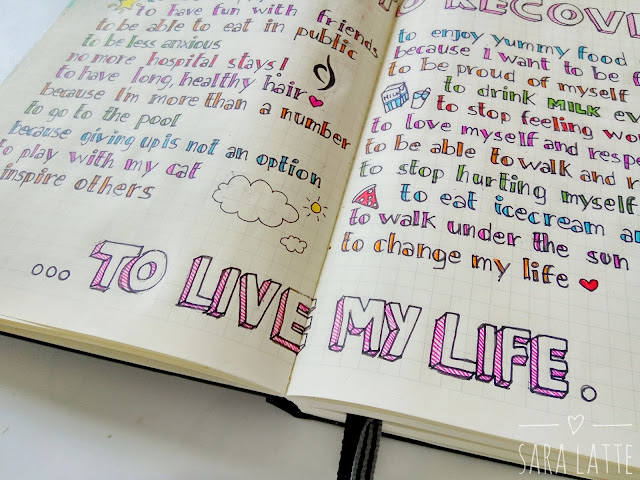 to have fun with friends
to be able to eat in public
to be less anxious
no more hospital stays!
to have long, healthy hair
because I'm more than a number
to go to the pool
because giving up is not an option
to play with my cat
inspire others
... TO LIVE
TO RECOVE
to enjoy yummy food
because I want to be
to be proud of myself
MILK
to drink MILK eve
to stop feeling wo
to love myself and respe
to be able to walk and r
to stop hurting myself
to eat icecream a
to walk under the sun
to change my life
MY LIFE.
SARA LATTE